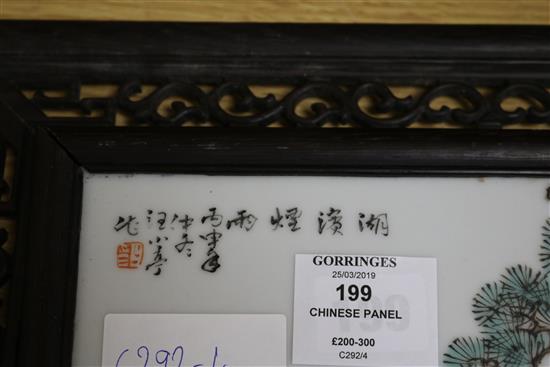 湖濱煙雨
丙申年
仲冬
汪小亭
作
GORRINGES
25/03/2019
199
CHINESE PANEL
£200-300
C292/4
C292-4